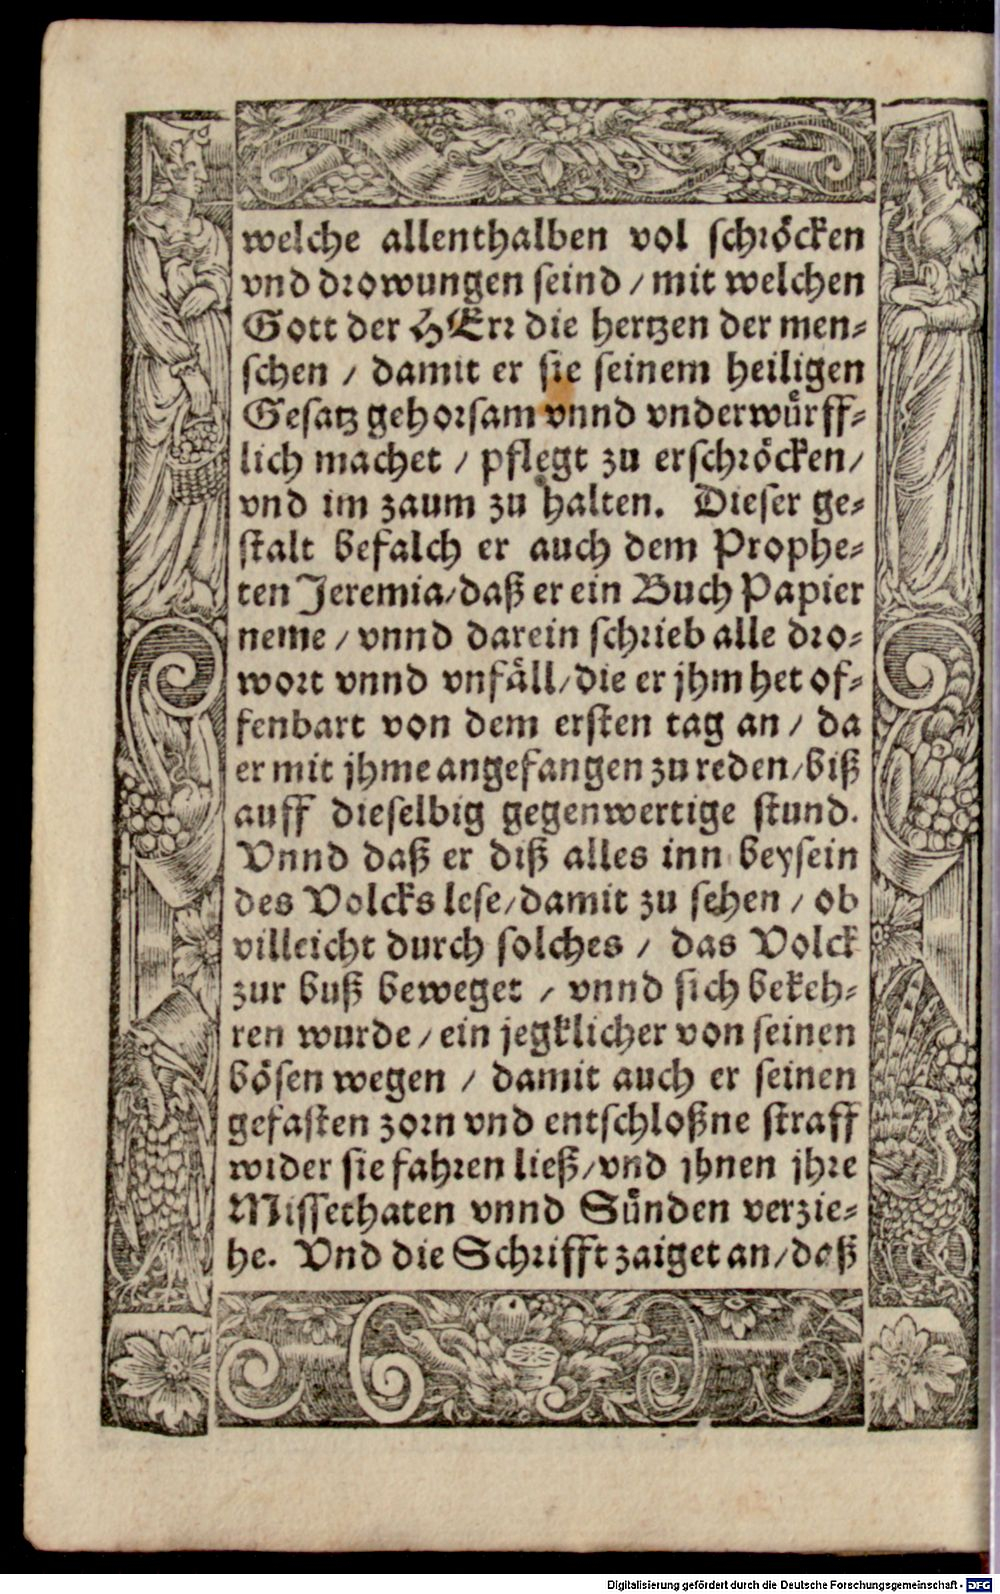 welche allenthalben vol schröcken
vnd drowungen seind / mit welchen
Gott der HErr die hertzen der men-
schen / damit er sie seinem heiligen
Gesatz gehorsam vnnd vnderwürff-
lich machet / pflegt zu erschröcken /
vnd im zaum zu halten. Dieser ge-
stalt befalch er auch dem Prophe-
ten Jeremia / daß er ein Buch Papier
neme / vnnd darein schrieb alle dro-
wort vnnd vnfäll / die er jhm het of-
fenbart von dem ersten tag an / da
er mit jhme angefangen zu reden / biß
auff dieselbig gegenwertige stund.
Vnnd daß er diß alles inn beysein
des Volcks lese / damit zu sehen / ob
villeicht durch solches / das Volck
zur buß beweget / vnnd sich bekeh-
ren wurde / ein jegklicher von seinen
bösen wegen / damit auch er seinen
gefasten zorn vnd entschloßne straff
wider sie fahren ließ / vnd jhnen jhre
Missethaten vnnd Sünden verzie-
he. Vnd die Schrifft zaiget an / daß
Digitalisierung gefördert durch die Deutsche Forschungsgemeinschaft - DFG